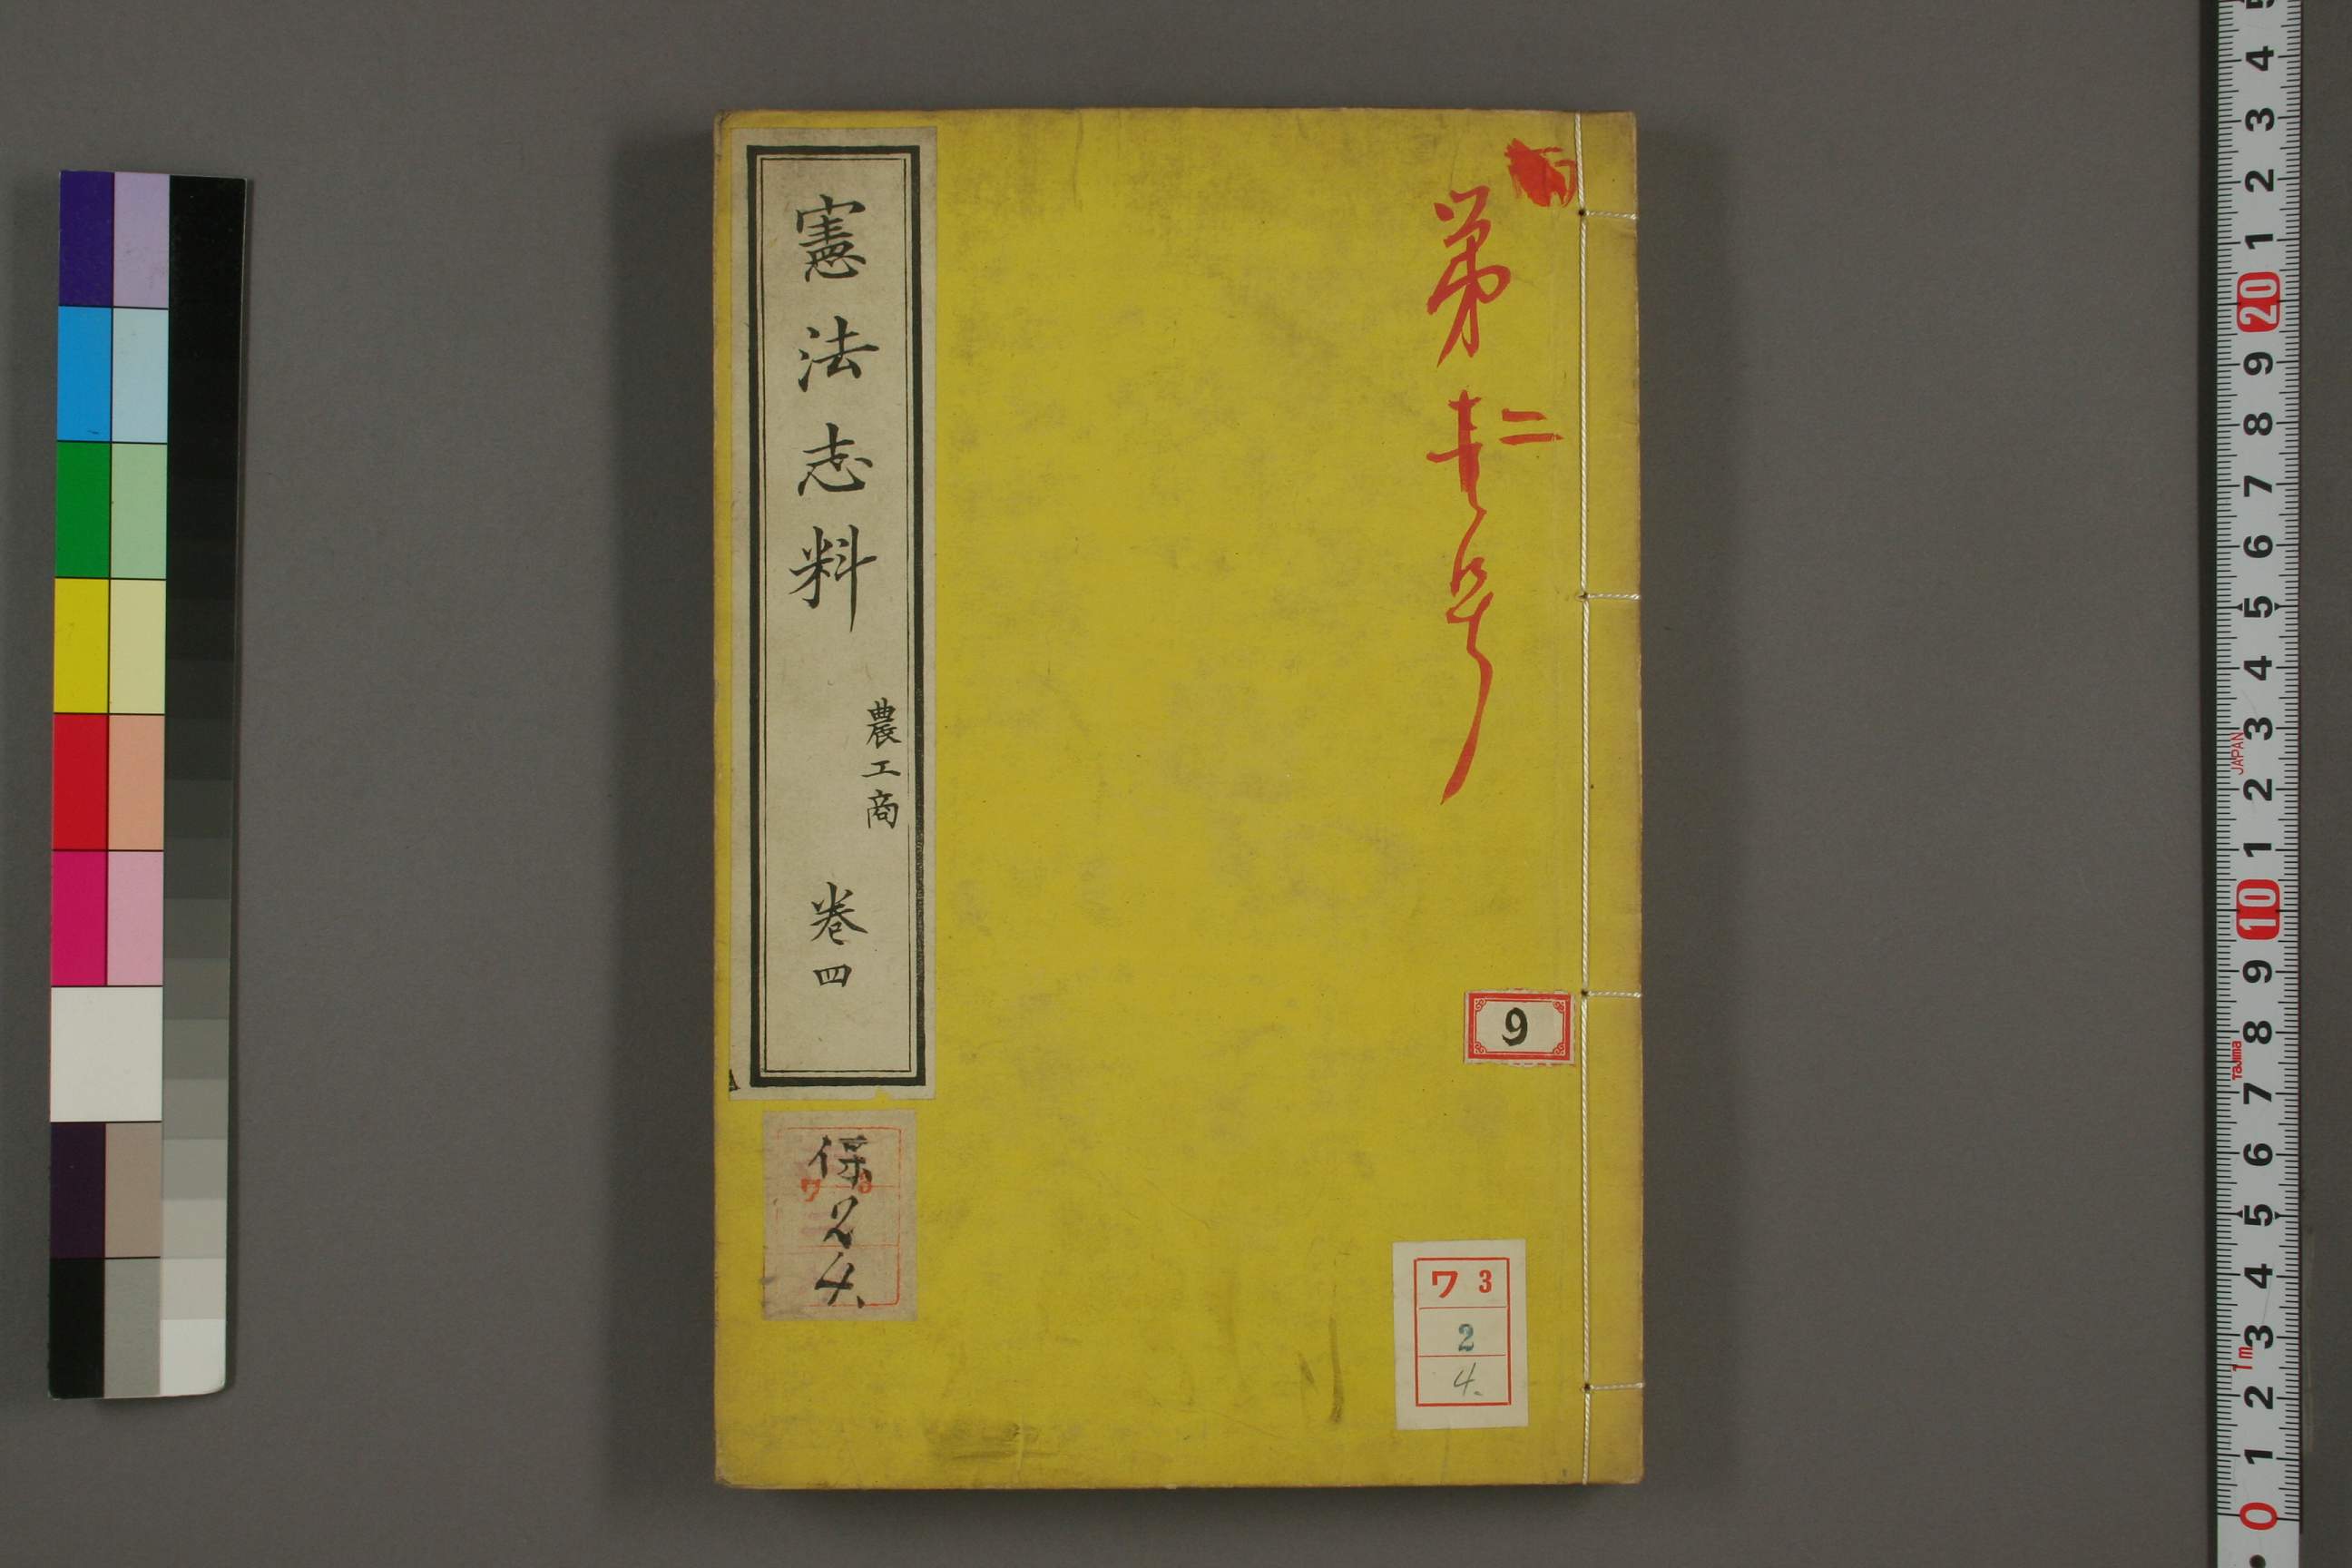 第壱二号
憲法志料 農工商 巻四
9
保24
ワ 3
ワ 3
2
4.
5 4 3 2 1 20 9 8 7 6 5 4 3 2 1 10 9 8 7 6 5 4 3 2 1 0
JAPAN
Tajima
1m